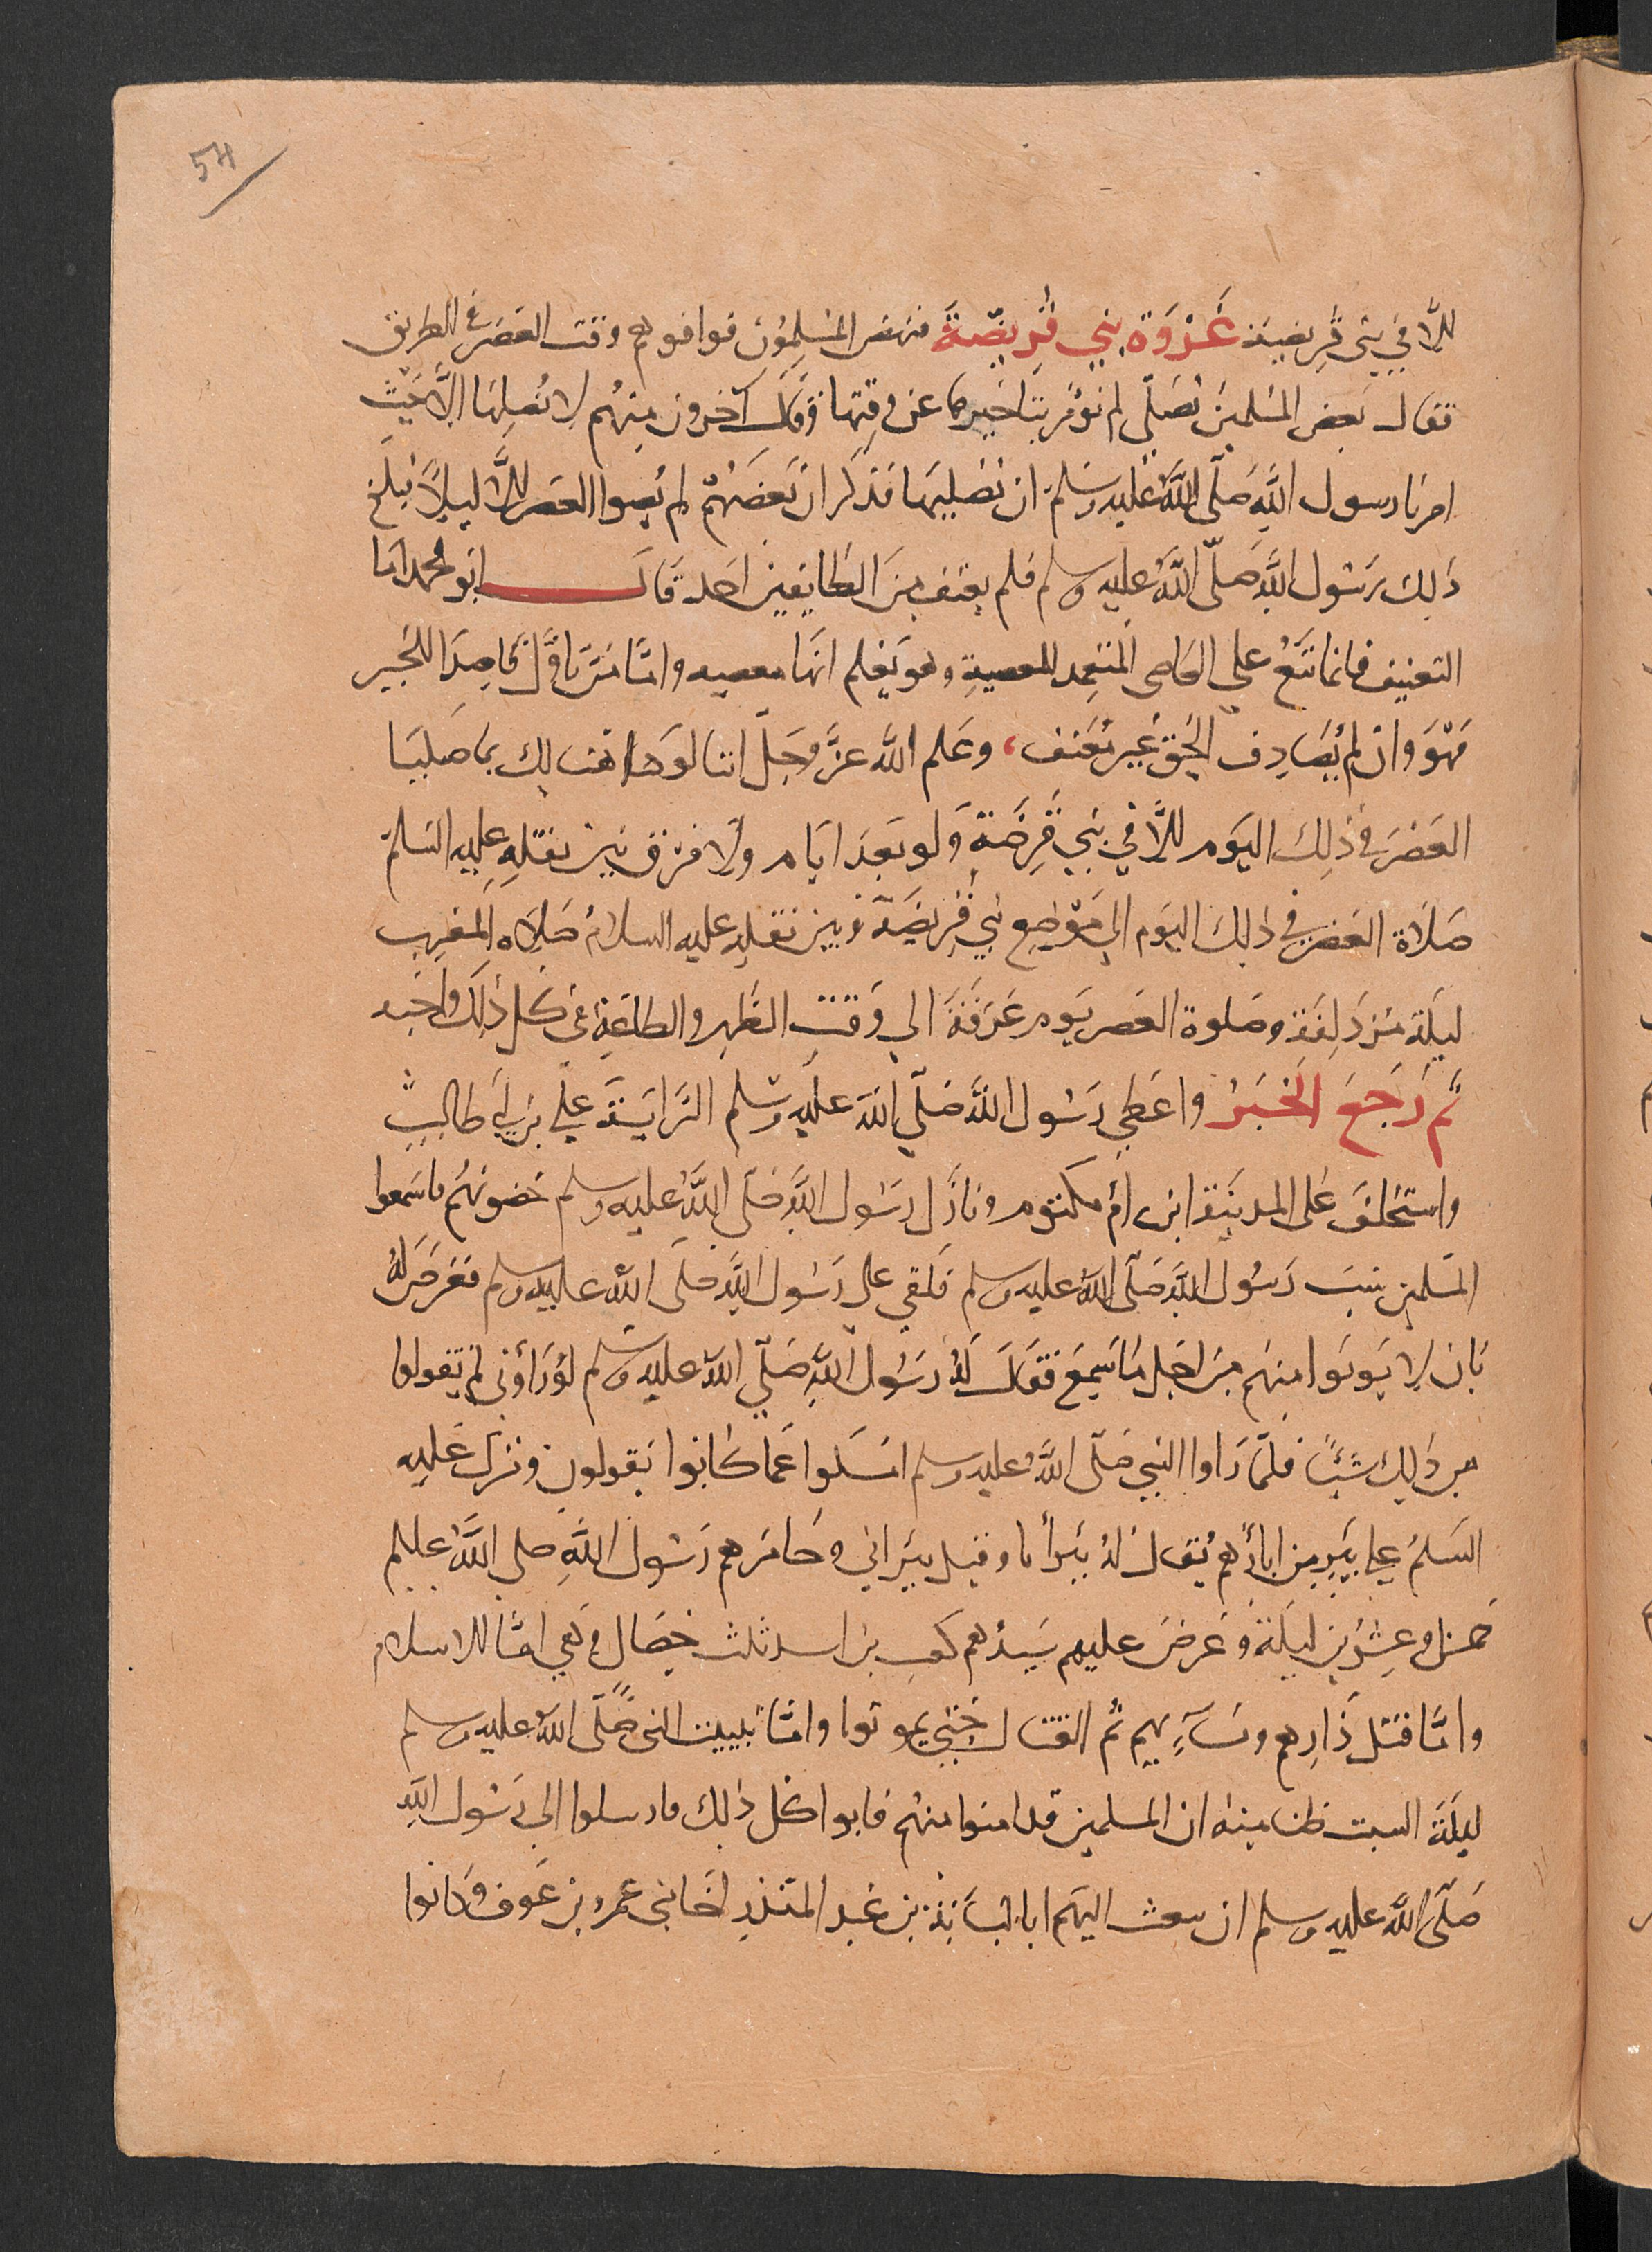 54
للا في بني قريضة غزوة بني قريضة فنهض المسلمون فوافوهم وقت العصر في الطريق
فقال بعض المسلمين نصلي لم نؤمر بتاخيرها عن وقتها وقال آخرون منهم لا نصليها الا حيث
امرنا رسول الله صلى الله عليه وسلم ان نصليها فذكر ان بعضهم لم يصوا العصر للا ليلا فبلغ
ذلك رسول الله صلى الله عليه وسلم فلم يعنف من الطايفين احد قال ابو محمد اما
التعنيف فانما تقع علي العاصي المتعمد للمعصية وهو يعلم انها معصيه واما من تاول قاصدا للخير
فهو وان لم يصادف الحق غير معنف، وعلم الله عز وجل اننا لو هنالك ما صلينا
العصر في ذلك اليوم للا في بني قرضة ولو بعد ايام ولا فرق بين نقله عليه السلم
صلاة العصر في ذلك اليوم الي موضع بني قريضة وبين نقله عليه السلام صلاه المغرب
ليلة مزدلفة وصلوة العصر يوم عرفة الي وقت الظهر والطاعة في كل ذلك واجبه
ثم رجع الخبر واعطي رسول الله صلى الله عليه وسلم الراية علي بن ابي طالب
واستخلف على المدينة ابن ام مكتوم ونازل رسول الله صلى الله عليه وسلم حضونهم فاسمعوا
المسلمين سب رسول الله صلى الله عليه وسلم فلقي علي رسول الله صلى الله عليه وسلم فعرض له
بان لا يدنوا منهم من اجل ما سمع فقال له رسول الله صلى الله عليه وسلم لو راوني لم يقولوا
من ذلك شئا فلما راوا النبي صلى الله عليه وسلم امسكوا عما كانوا يقولون ونزل عليه
السلم علي بير من ابارهم يقال له بير أنا وقيل بير اني وحاصرهم رسول الله صلى الله عليلم
خمسا وعشرين ليلة وعرض عليهم سيدهم كعب بن اسد ثلث خصال وهي اما للاسلام
واما قتل ذارهم ونسآءيهم ثم القتال حتي يموتوا واما تبييت النبي صلى الله عليه وسلم
ليلة السبت ظنا منه ان المسلمين قد امنوا منهم فابوا كل ذلك فارسلوا الي رسول الله
صلى الله عليه وسلم ان يبعث اليهم ابا لبابة بن عبد المنذر اخا بني عمرو بن عوف وكانوا